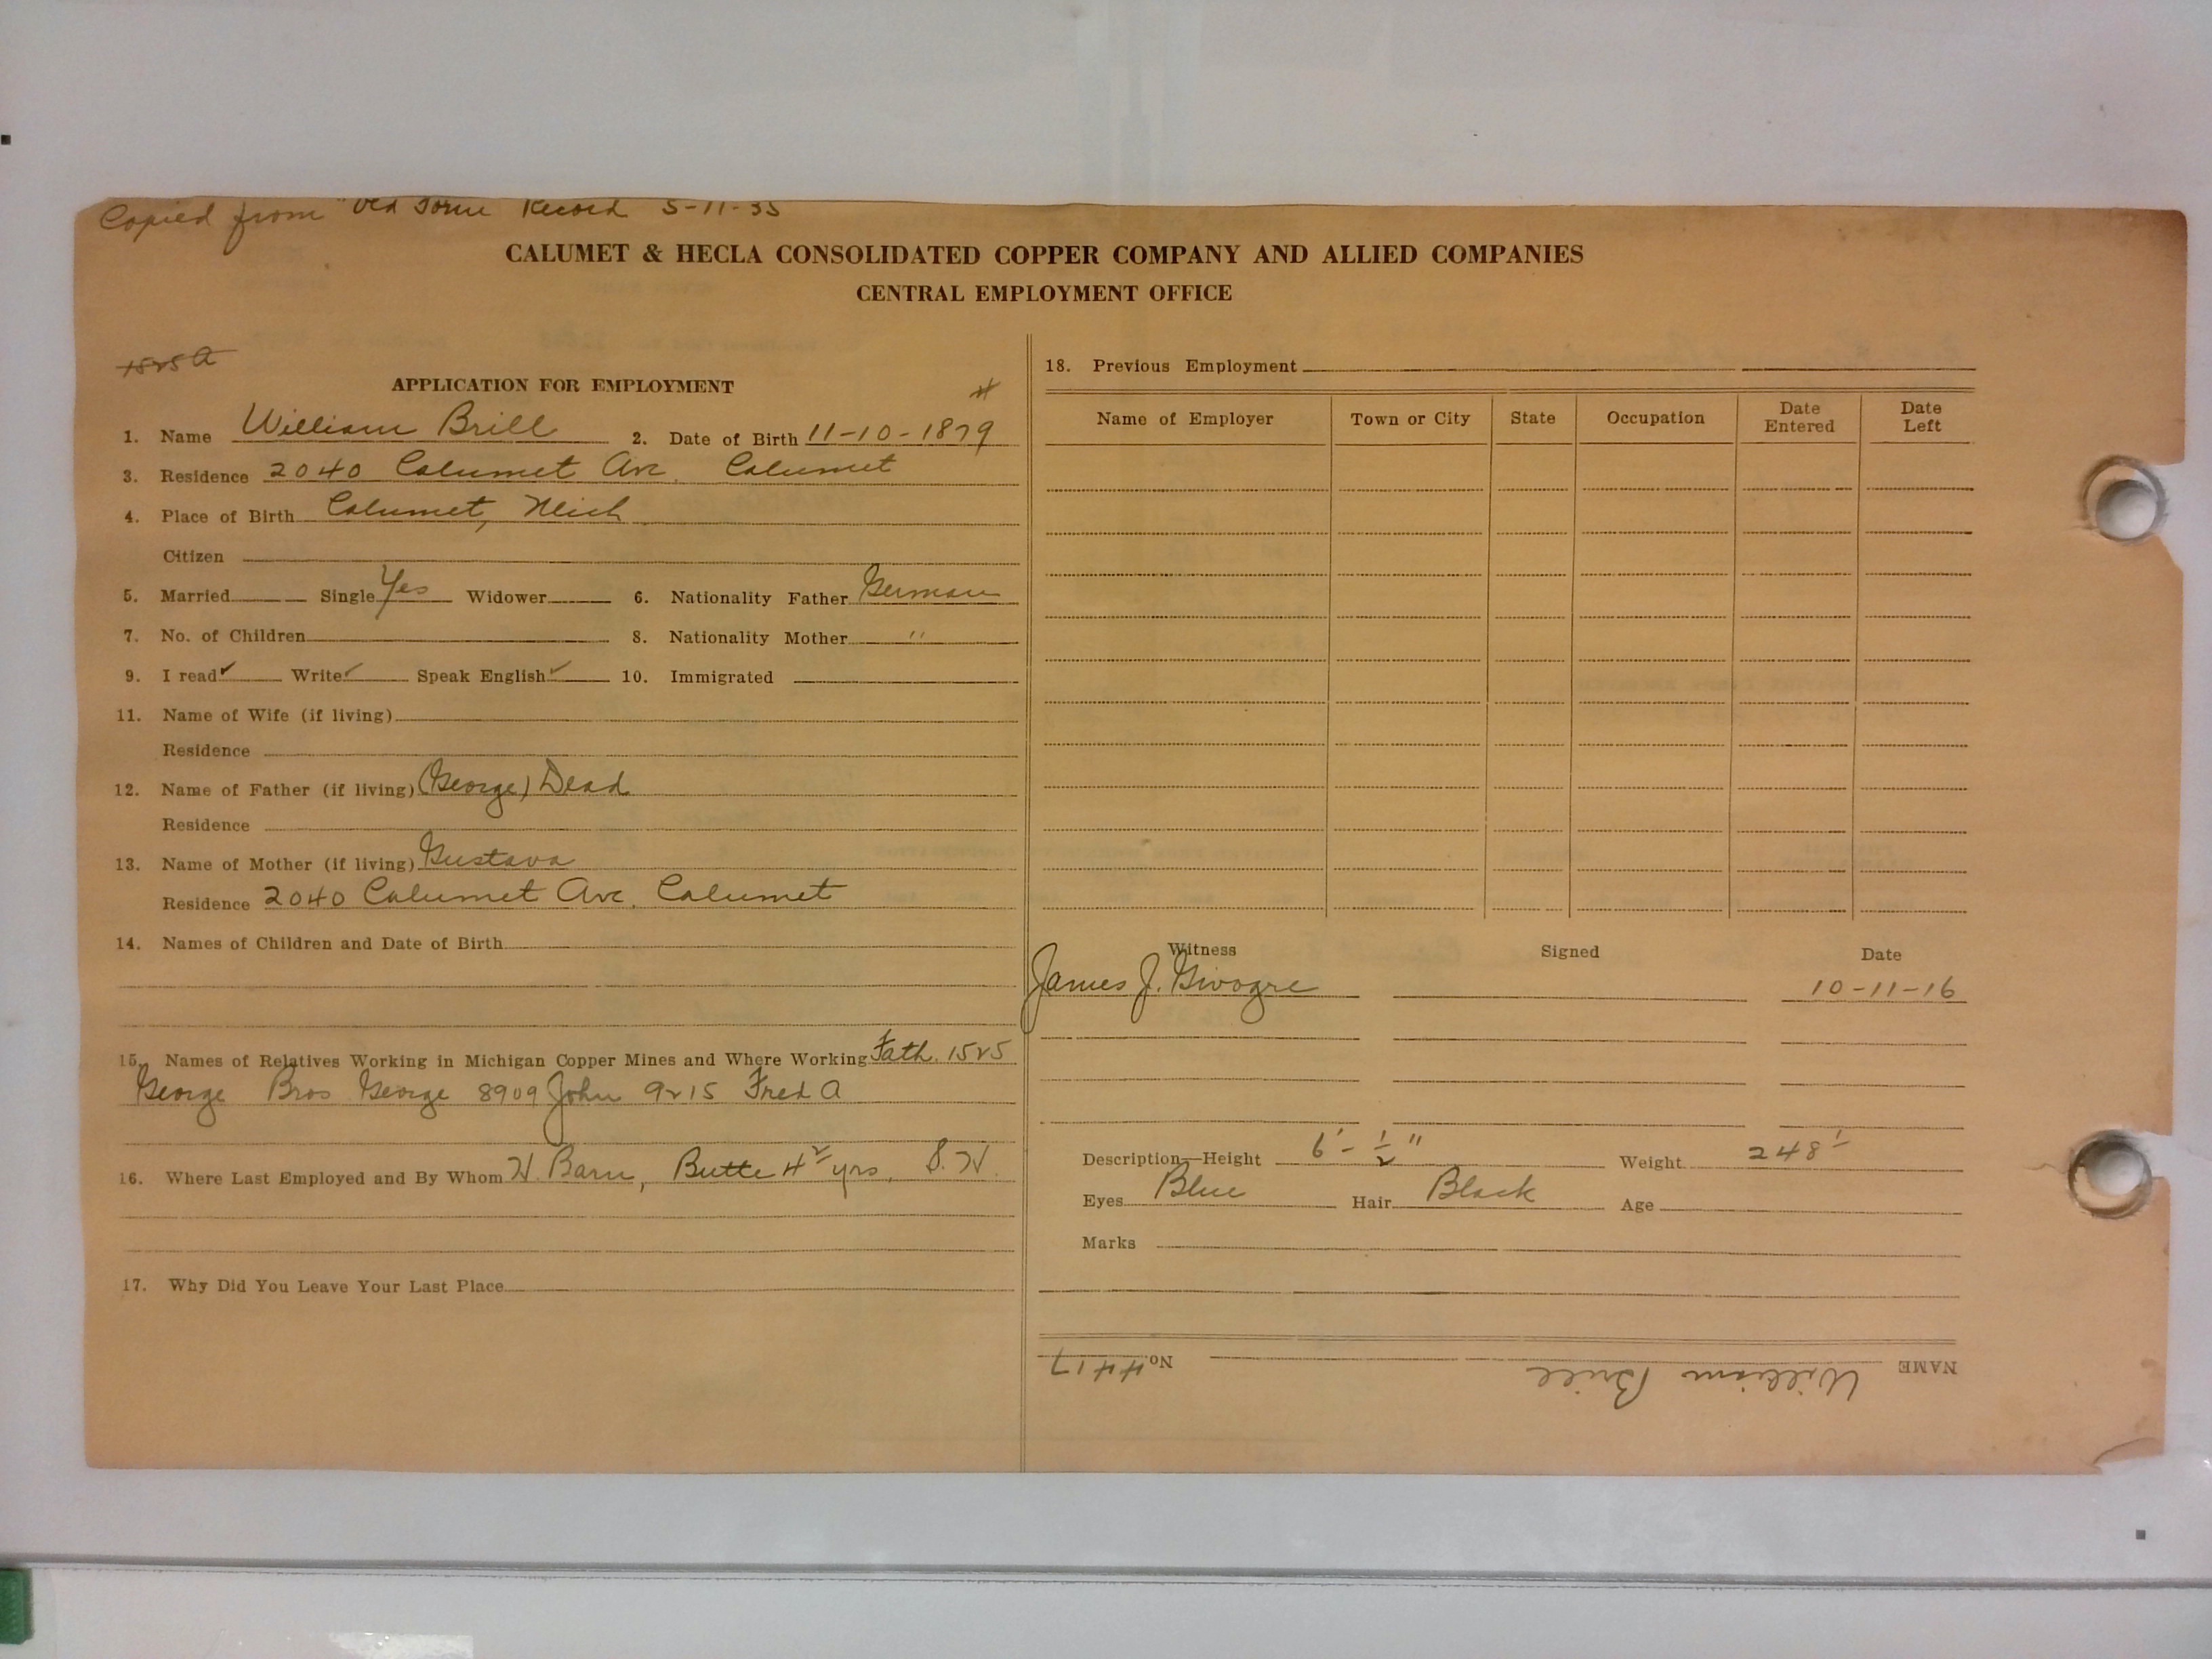 Copied from "Old Form Record 5-11-35
CALUMET & HECLA CONSOLIDATED COPPER COMPANY AND ALLIED COMPANIES
CENTRAL EMPLOYMENT OFFICE
1525 A
APPLICATION FOR EMPLOYMENT
1. Name William Brill 2. Date of Birth 11-10-1879
3. Residence 2040 Calumet Ave. Calumet
4. Place of Birth Calumet, Mich
Citizen
5. Married Single Yes Widower 6. Nationality Father German
7. No. of Children 8. Nationality Mother "
9. I read ✓ Write ✓ Speak English ✓ 10. Immigrated
11. Name of Wife (if living)
Residence
12. Name of Father (if living) (George) Dead
Residence
13. Name of Mother (if living) Gustava
Residence 2040 Calumet Ave. Calumet
14. Names of Children and Date of Birth
15. Names of Relatives Working in Michigan Copper Mines and Where Working Fath. 1525
George Bros George 8909 John 9215 Fred A
16. Where Last Employed and By Whom H. Barn, Butte yrs.
17. Why Did You Leave Your Last Place
18. Previous Employment
Name of Employer Town or City State Occupation Date Entered Date Left
Witness Signed Date
James J. 10-11-16
Description—Height 6'-½" Weight 248
Eyes Blue Hair Black Age
Marks
NAME William Brill No. 4417